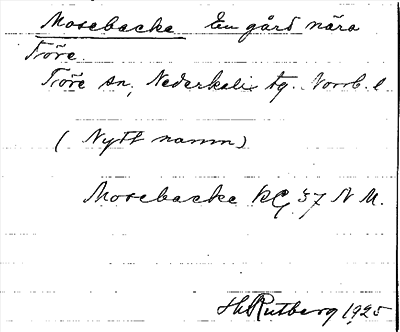 Mosebacke En gård nära
Töre.
Töre sn, Nederkalix tg. Norrb. l
(Nytt namn)
Mosebacke KG, 57 N M.
Hh Rutberg 1925